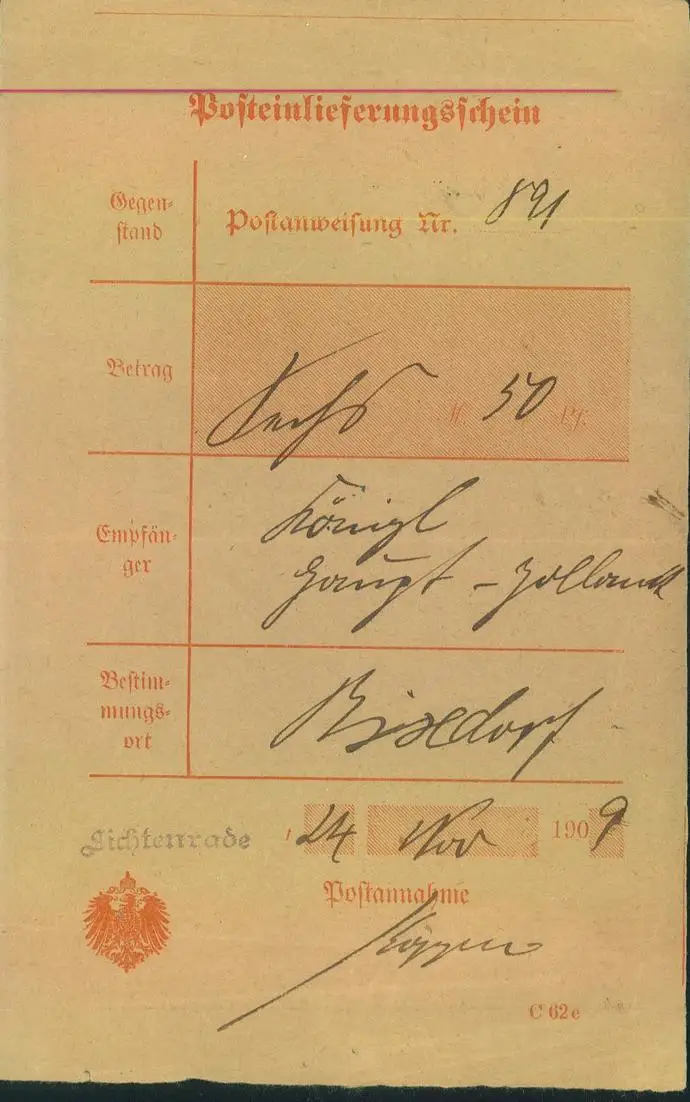 Posteinlieferungsschein
Gegen-
stand
Postanweisung Nr. 891
Betrag
Sechs M. 50 Pf.
Empfän-
ger
Königl
Haupt-Zollamt
Bestim-
mungs-
ort
Lichtenrade, 24 Nov 1909
Postannahme
C 62e